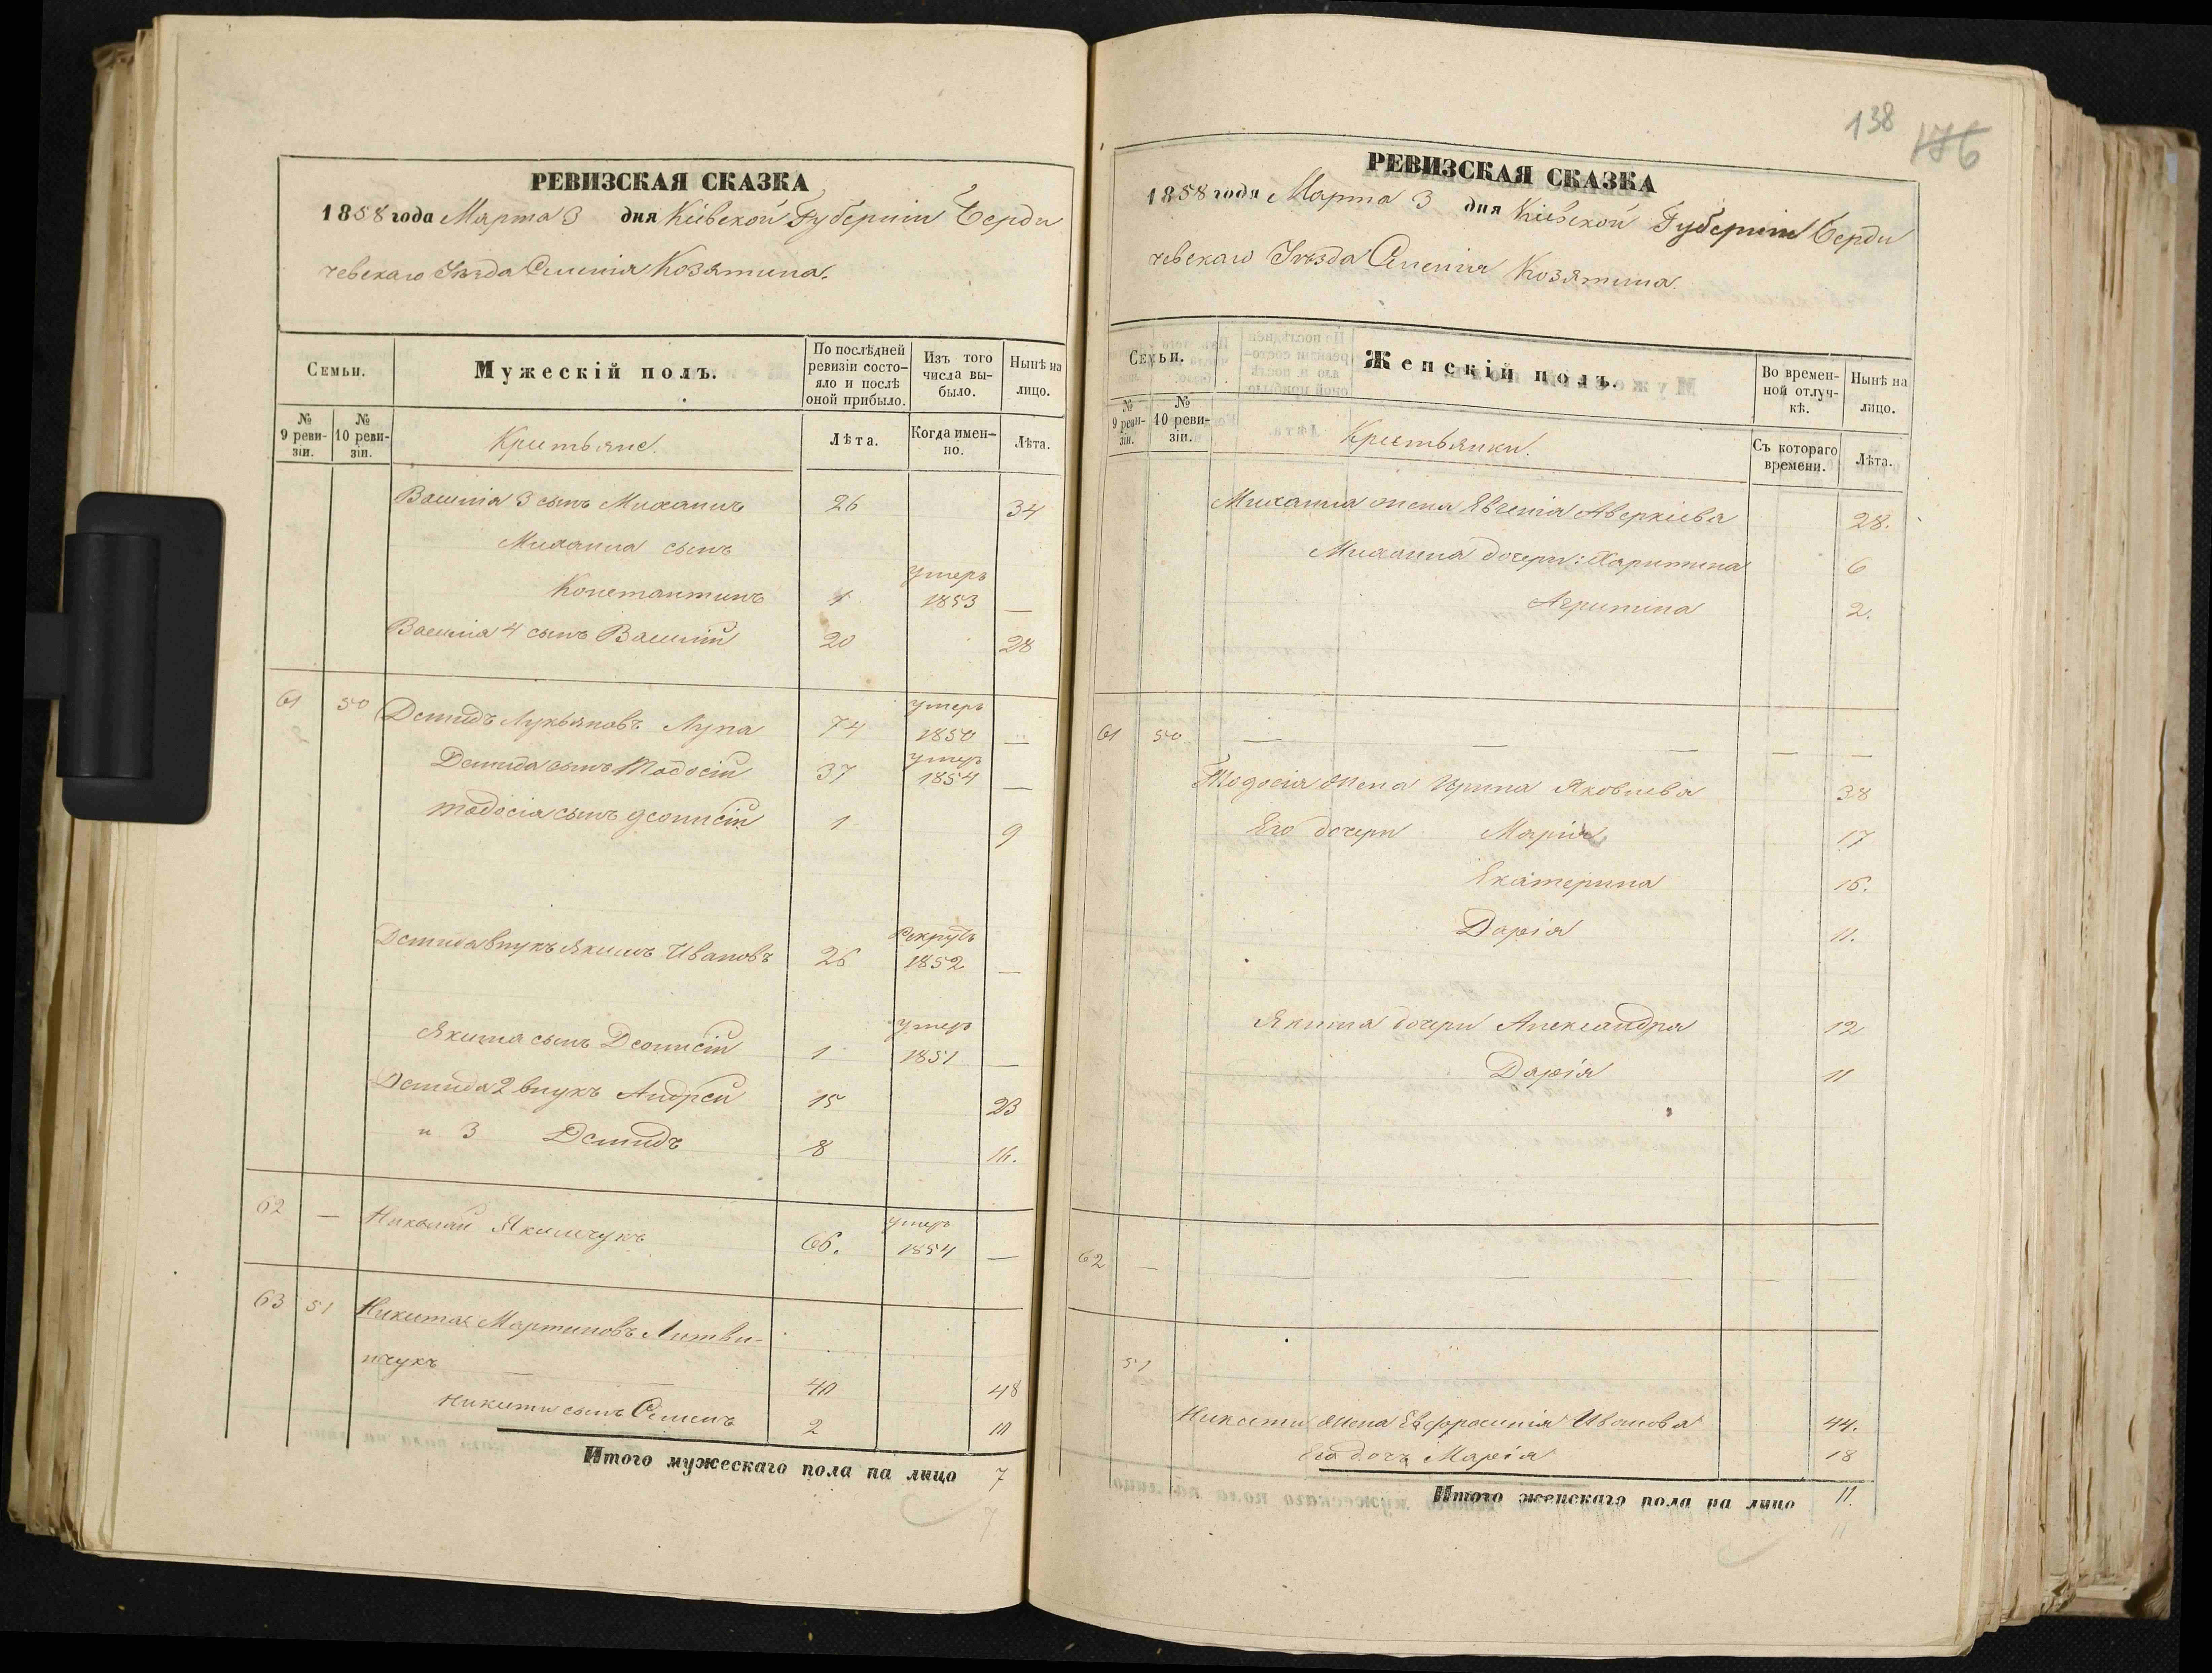 РЕВИЗСКАЯ СКАЗКА
1858 года Марта 3 дня Кіевской Губерніи Берди
чевскаго Уѣзда Селенія Козятина.
Семьи.
Мужескій полъ.
По послѣдней ревизіи состояло и послѣ оной прибыло.
Изъ того числа выбыло.
Нынѣ на лицо.
№ 9 ревизіи.
№ 10 ревизіи.
Крестьяне.
Лѣта.
Когда именно.
Лѣта.
Василія 3 сынъ Михаилъ 26 34
Михаила сынъ
Умеръ
Константинъ 1 1853 —
Василія 4 сынъ Василій 20 28
Умеръ
61 50 Демидъ Лукьяновъ Лупа 74 1850 —
Умеръ
Демида сынъ Тодосій 37 1854 —
Тодосія сынъ Деонисій 1 9
Рекрутъ
Демида внукъ Якимъ Ивановъ 26 1852 —
Умеръ
Якима сынъ Деонисій 1 1851 —
Демида 2 внукъ Андрей 15 23
" 3 Демидъ 8 16.
Умеръ
62 — Николай Якимчукъ 66. 1854 —
63 51 Никита Мартиновъ Литви-
нчукъ 40 48
Никиты сынъ Семенъ 2 10
Итого мужескаго пола на лицо 7
7
138
176
РЕВИЗСКАЯ СКАЗКА
1858 года Марта 3 дня Кіевской Губерніи Берди
чевскаго Уѣзда Селенія Козятина.
Семьи.
Женскій полъ.
Во временной отлучкѣ.
Нынѣ на лицо.
№ 9 ревизіи.
№ 10 ревизіи.
Крестьянки.
Съ котораго времени.
Лѣта.
Михаила жена Явгенія Аверкіева 28.
Михаила дочери: Харитина 6
Агрипина 2.
61 50 — — — — —
Тодосія жена Ирина Яковлева 38
Его дочери Марія 17
Екатерина 15.
Дарія 11.
Якима дочери Александра 12
Дарія 11
62 — — — — —
51
Никиты жена Евфросинія Иванова 44.
Его дочь Марія 18
Итого женскаго пола на лицо 11.
11